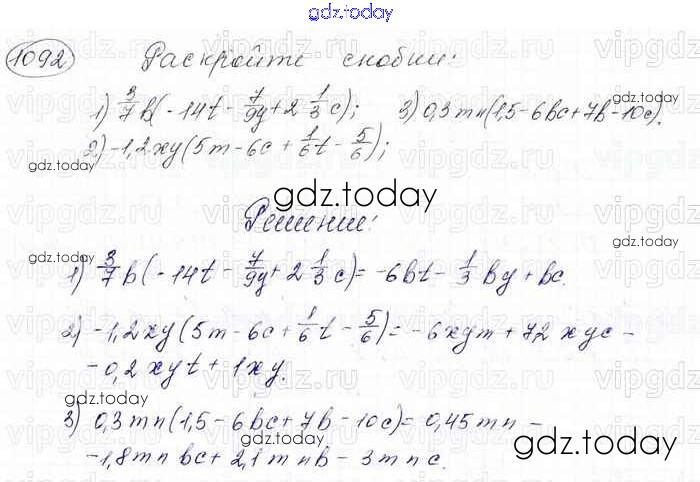 gdz.today
1092 Раскройте скобки:
1) 3/7 b(-14t - 7/9 y + 2 1/3 c); 3) 0,3mn(1,5-6bc+7b-10c).
2) -1,2xy(5m-6c+1/6 t - 5/6);
Решение:
1) 3/7 b(-14t - 7/9 y + 2 1/3 c) = -6bt - 1/3 by + bc.
2) -1,2xy(5m-6c+1/6 t - 5/6) = -6xym + 7,2xyc -
-0,2xyt + 1xy.
3) 0,3mn(1,5-6bc+7b-10c) = 0,45mn -
-1,8mnbc + 2,1mnb - 3mnc.
gdz.today
gdz.today
gdz.today
gdz.today
gdz.today
gdz.today
gdz.today